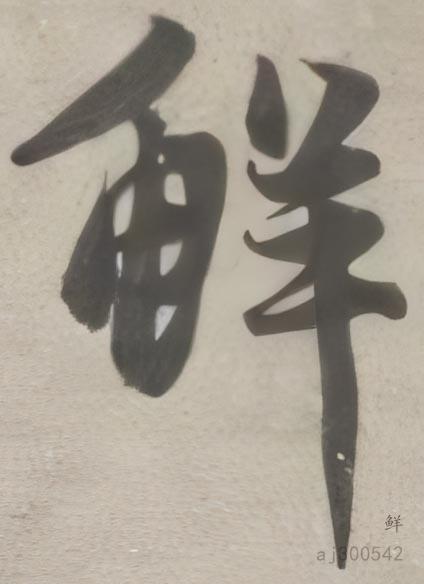 鮮
鲜
aj300542